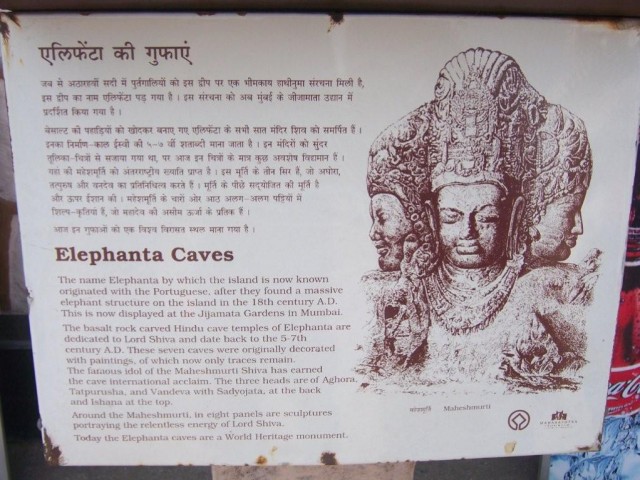 एलिफेंटा की गुफाएं
जब से अठारहवीं सदी में पुर्तगालियों को इस द्वीप पर एक भीमकाय हाथीनुमा संरचना मिली है,
इस द्वीप का नाम एलिफेंटा पड़ गया है । इस संरचना को अब मुंबई के जीजामाता उद्यान में
प्रदर्शित किया गया है ।
बेसाल्ट की पहाड़ियों को खोदकर बनाए गए एलिफेंटा के सभी सात मंदिर शिव को समर्पित हैं ।
इनका निर्माण-काल ईस्वी की ५-७ वीं शताब्दी माना जाता है । इन मंदिरों को सुंदर
तुलिका-चित्रों से सजाया गया था, पर आज इन चित्रों के मात्र कुछ अवशेष विद्यमान हैं ।
यहां की महेशमूर्ति को अंतरराष्ट्रीय ख्याति प्राप्त है । इस मूर्ति के तीन सिर हैं, जो अघोरा,
तत्पुरूष और वनदेव का प्रतिनिधित्व करते हैं । मूर्ति के पीछे सद्योजित की मूर्ति है
और ऊपर ईशान की । महेशमूर्ति के चारों ओर आठ अलग-अलग पट्टियों में
शिल्प-कृतियां हैं, जो महादेव की असीम ऊर्जा के प्रतिक हैं ।
आज इन गुफाओं को एक विश्व विरासत स्थल माना गया है ।
Elephanta Caves
The name Elephanta by which the island is now known
originated with the Portuguese, after they found a massive
elephant structure on the island in the 18th century A.D.
This is now displayed at the Jijamata Gardens in Mumbai.
The basalt rock carved Hindu cave temples of Elephanta are
dedicated to Lord Shiva and date back to the 5-7th
century A.D. These seven caves were originally decorated
with paintings, of which now only traces remain.
The famous idol of the Maheshmurti Shiva has earned
the cave international acclaim. The three heads are of Aghora,
Tatpurusha, and Vandeva with Sadyojata, at the back
and Ishana at the top.
Around the Maheshmurti, in eight panels are sculptures
portraying the relentless energy of Lord Shiva.
Today the Elephanta caves are a World Heritage monument.
Maheshmurti